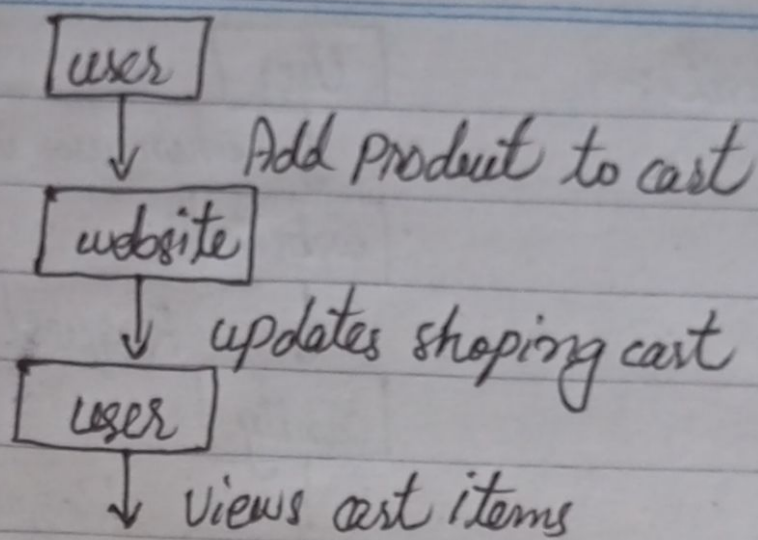 user
Add Product to cart
website
updates shoping cart
user
views cart items